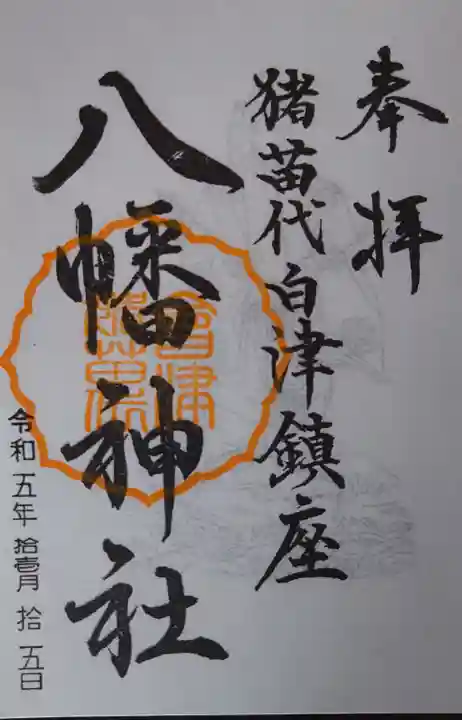 奉拝
猪苗代白津鎮座
八幡神社
會津
猪苗代
令和五年拾壱月拾五日